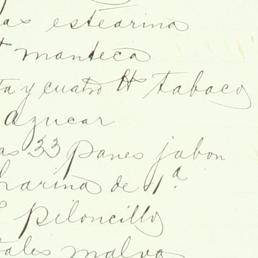 as estearina
manteca
ta y cuatro lts tabaco
azucar
as 33 panes jabon
harina de 1ª
piloncillo
tales malva